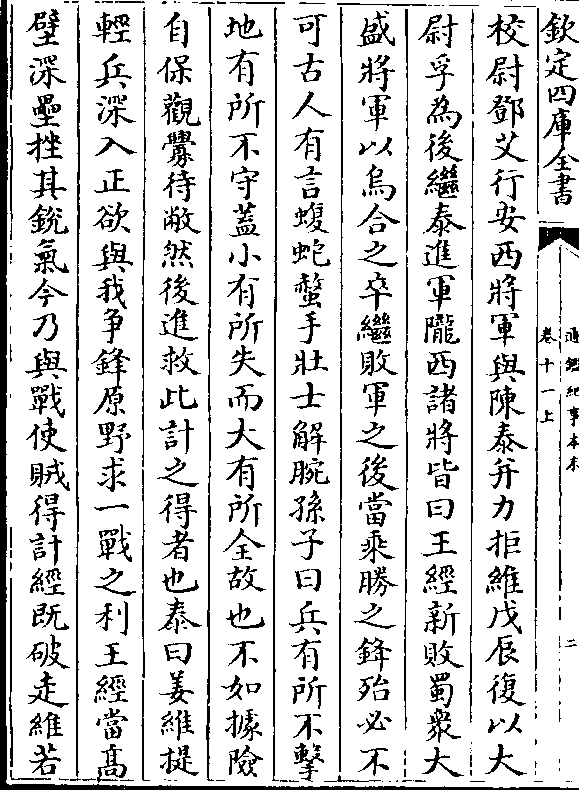 欽定四庫全書
通鑑紀事本末
卷十一上
二
校尉鄧艾行安西將軍與陳泰并力拒維戊辰復以太
尉孚為後繼泰進軍隴西諸將皆曰王經新敗蜀衆大
盛將軍以烏合之卒繼敗軍之後當乘勝之鋒殆必不
可古人有言蝮蛇螫手壯士解腕孫子曰兵有所不擊
地有所不守蓋小有所失而大有所全故也不如據險
自保觀釁待敝然後進救此計之得者也泰曰姜維提
輕兵深入正欲與我争鋒原野求一戰之利王經當髙
壁深壘挫其銳氣今乃與戰使賊得計經既破走維若